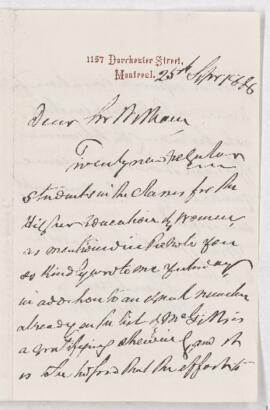 1157 Dorchester Street,
Montreal. 25th Sept 1886
Dear Sir William
Twenty new regular
students in the Classes for the
Higher Education of Women,
as mentioned in the note you
so kindly wrote me yesterday
in addition to an equal number
already on the list of McGill is
a gratifying showing and it
is to be hoped that the effort to